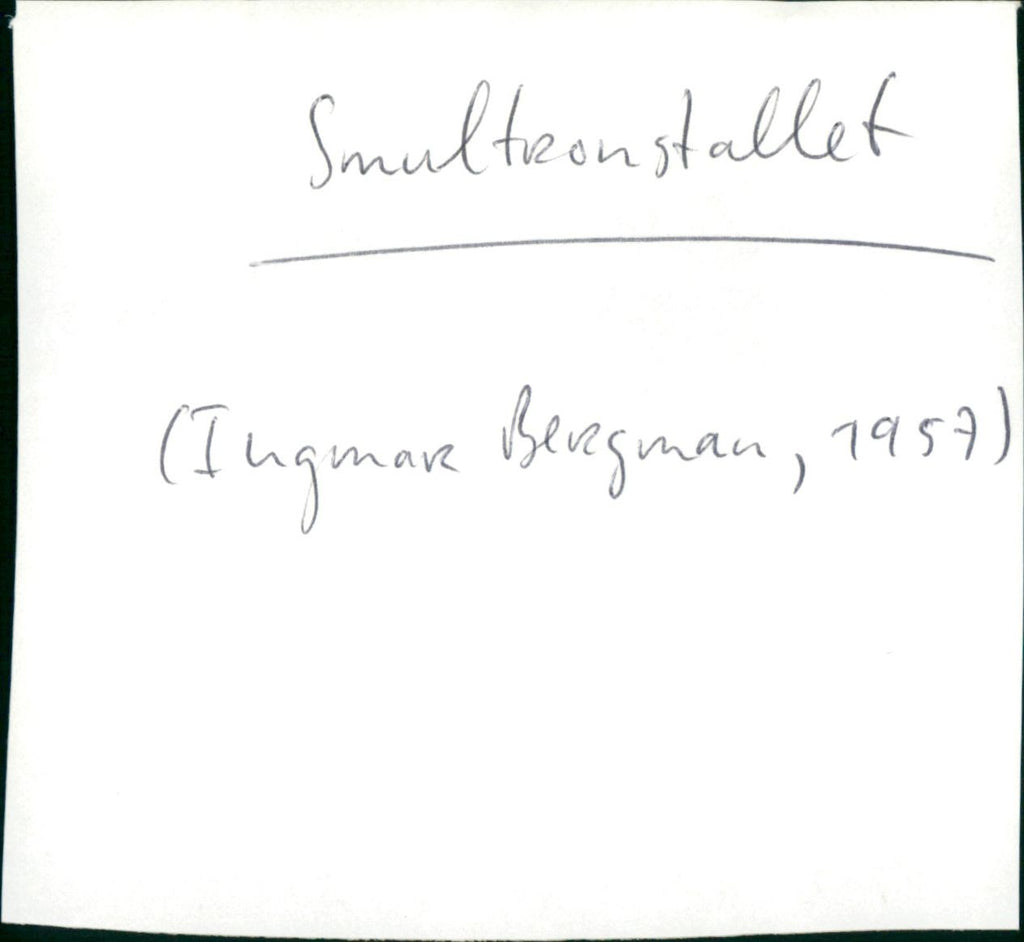 Smultronstallet
(Ingmar Bergman, 1957)